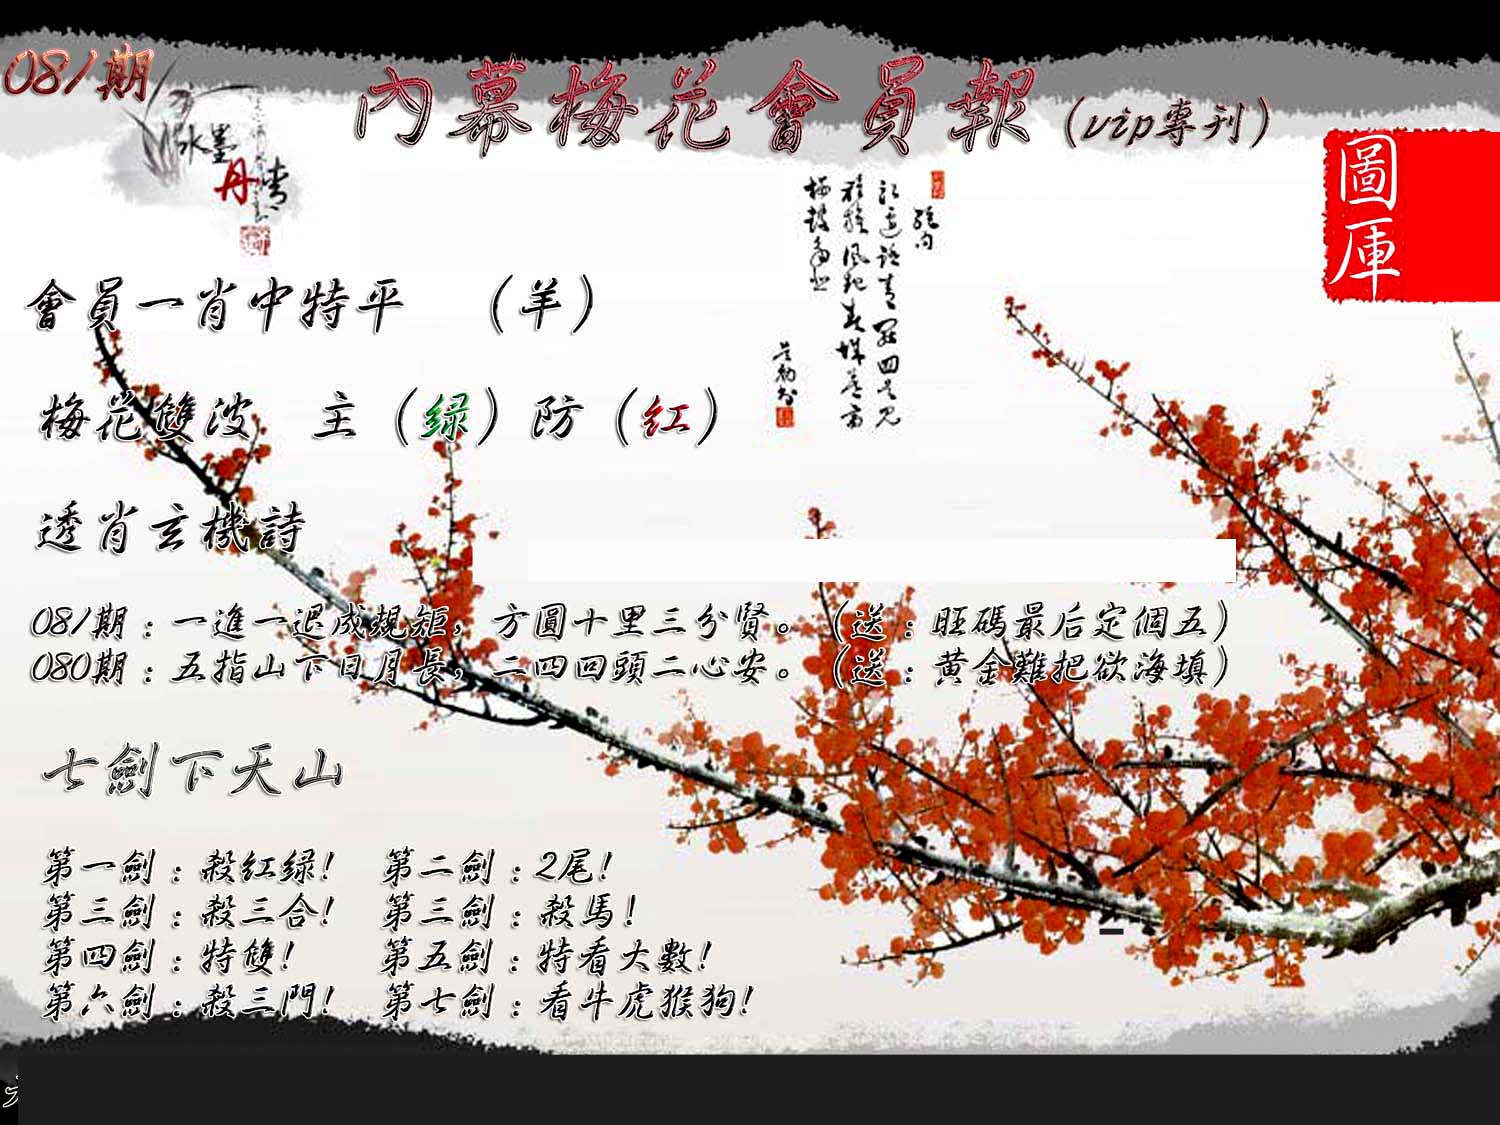 081期
內幕梅花會員報（vip專刊）
水墨
丹青
圖庫
會員一肖中特平　（羊）
梅花雙波　主（绿）防（红）
透肖玄機詩
081期：一進一退成規矩，方圓十里三分賢。（送：旺碼最后定個五）
080期：五指山下日月長，二四回頭二心安。（送：黄金難把欲海填）
七劍下天山
第一劍：殺红绿！　第二劍：2尾！
第三劍：殺三合！　第三劍：殺馬！
第四劍：特雙！　第五劍：特看大數！
第六劍：殺三門！　第七劍：看牛虎猴狗！